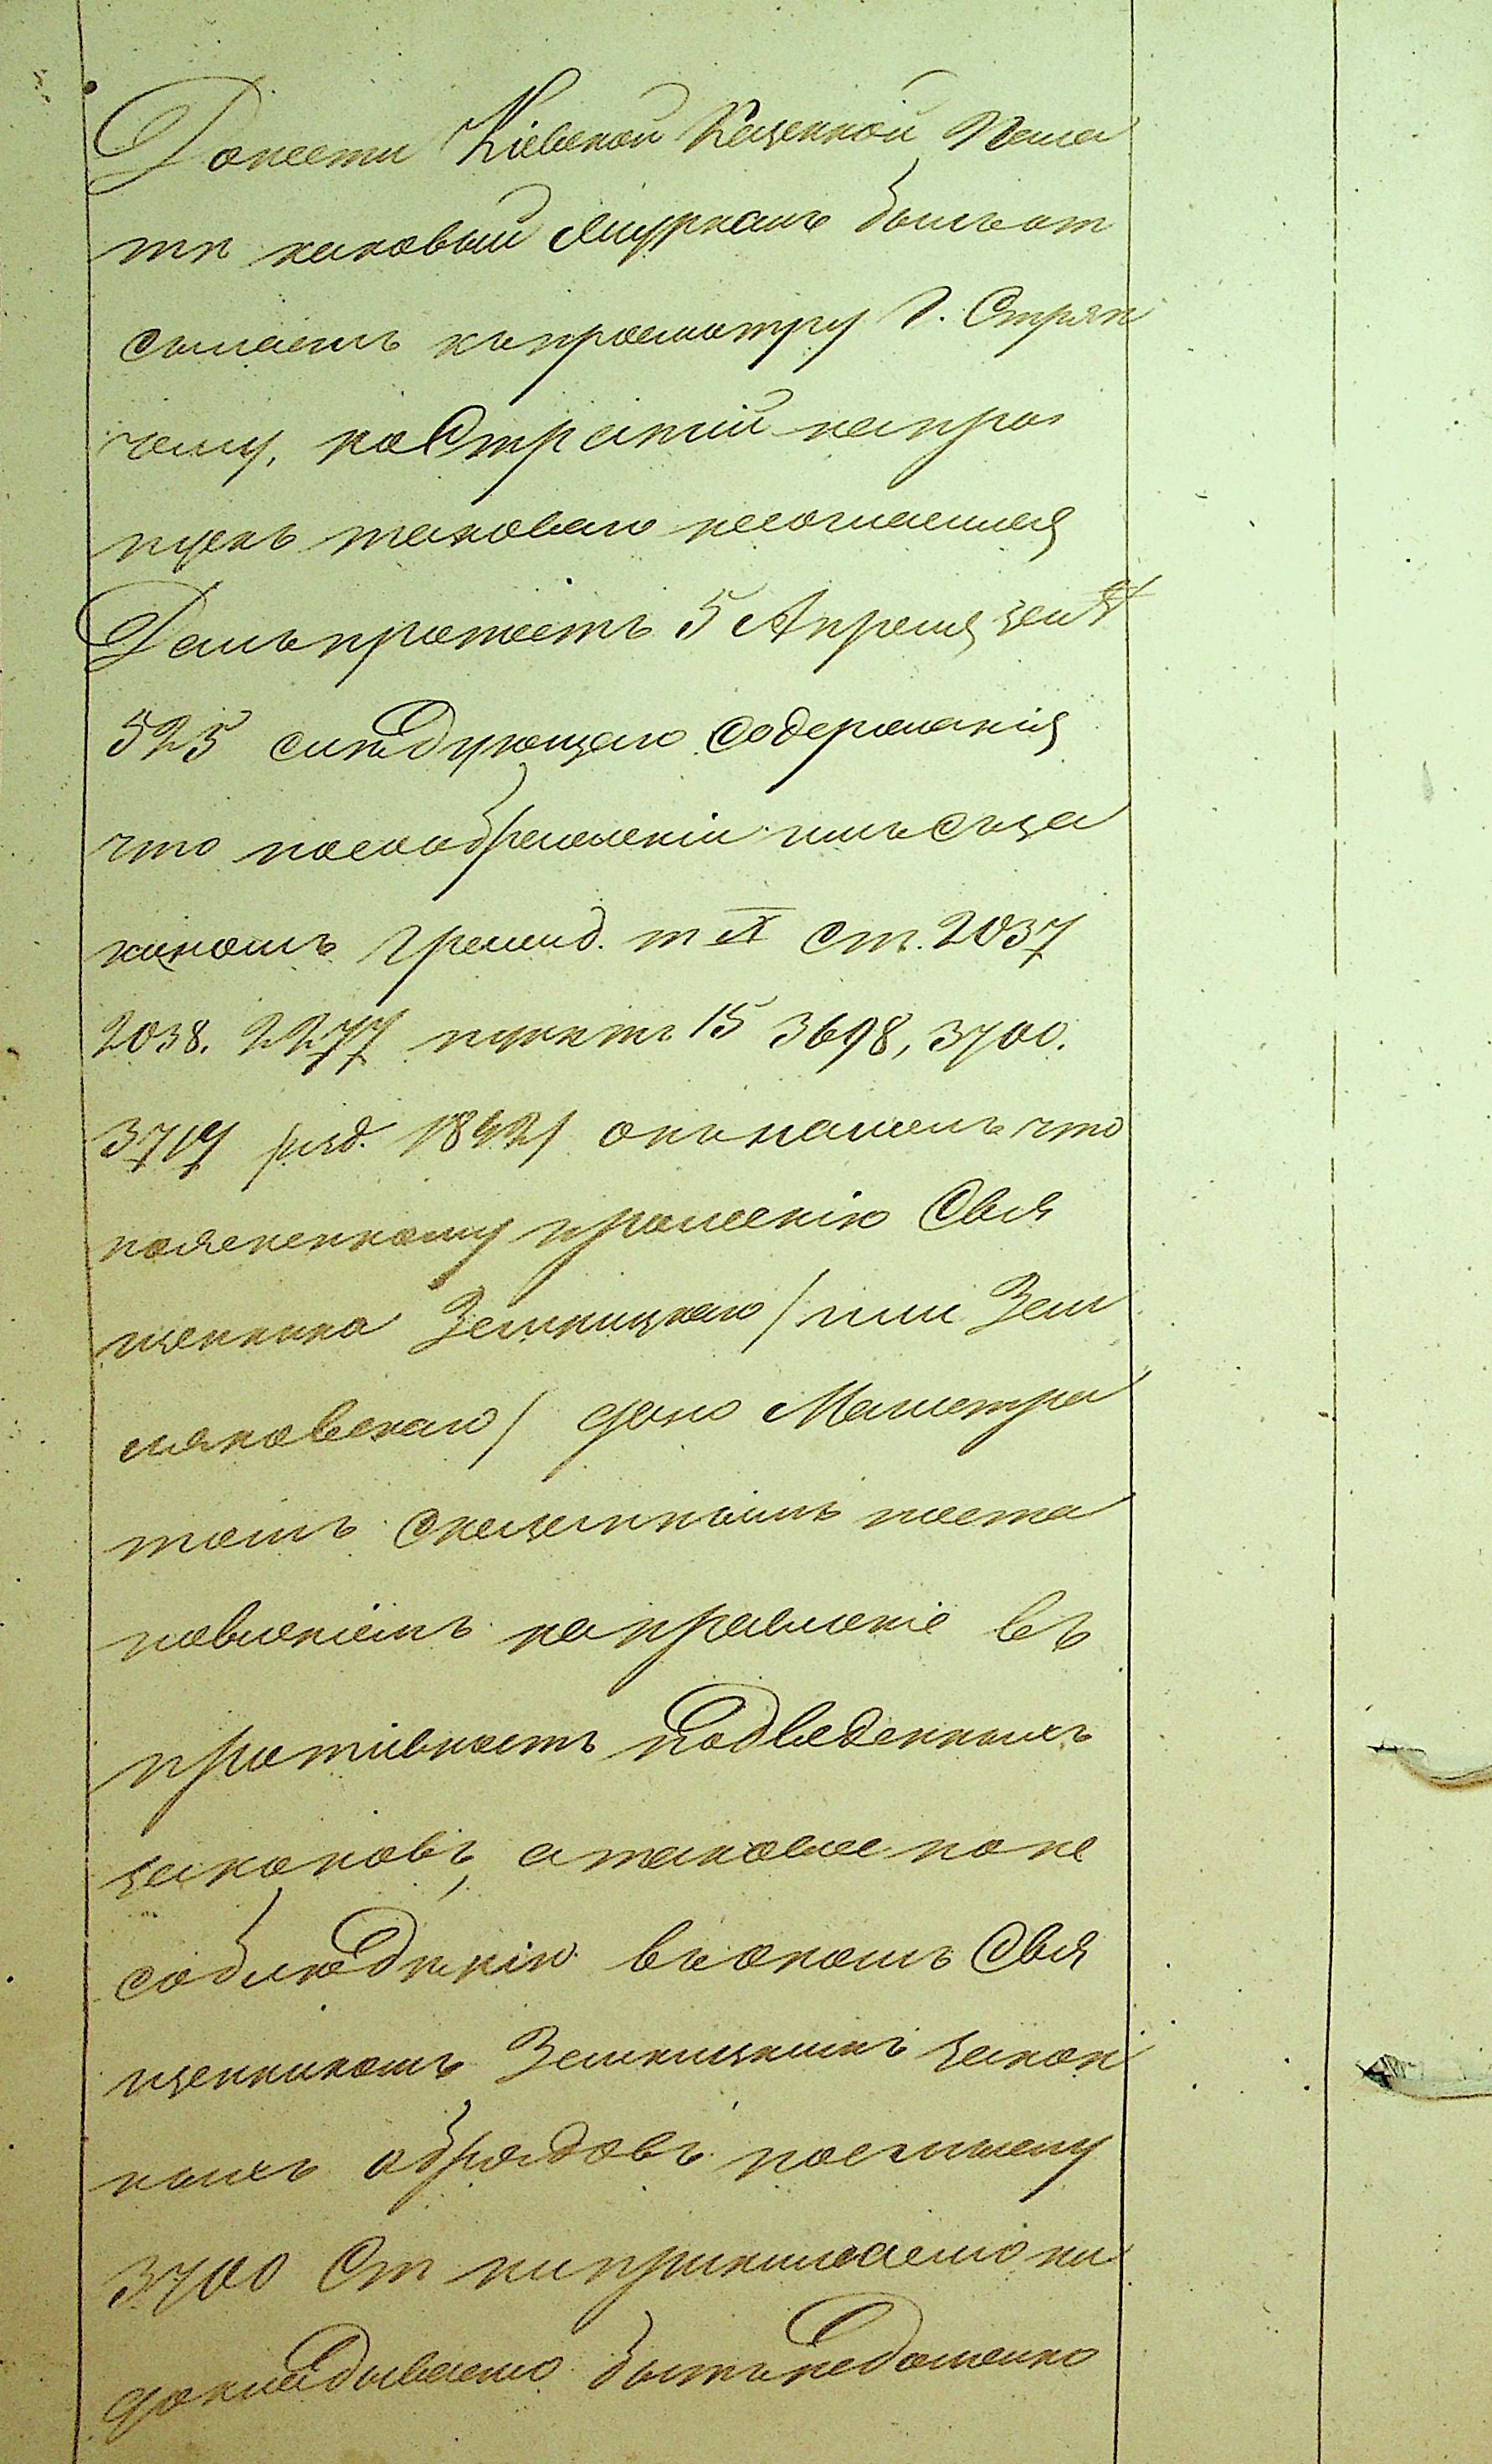 Донести Кіевской Казенной Пала
тѣ каковый Журналъ былъ от
сылаемъ къ просмотру Г. Стряп
чему, но Стряпчій на про
пускъ таковаго несогласился
Далъ протестъ 5 Апрѣля за №
525 слѣдующаго содержанія
что по соображеніи имъ съ за
кономъ гражд. т X ст. 2037
2038. 2277 пунктъ 15 3698, 3700.
3717 /изд. 1842/ онъ нашелъ что
поясненному прошенію Свя
щенника Зелницкаго / или Зем
ляновскаго / дано Магистра
томъ сказаннымъ поста
новленіемъ направленіе въ
противность подведенныхъ
законовъ, а таковое по не
соблюденію въ ономъ Свя
щенникомъ Зелницкимъ закон
ныхъ обрядовъ по смыслу
3700 Ст ни принимаемо ни
докладываемо быть недолжно